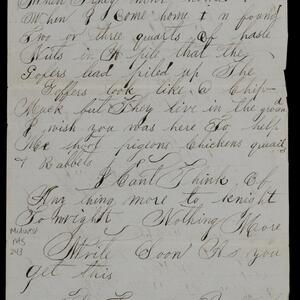 When I Come home I n found
Two or three quarts Of hasle
Nuts in A pile that the
Gofers Head piled up The
Goffers look like a Chip-
Muck but They live in the ground
I wish you was here To help
Me shoot pigeons Chickens quail
& Rabbets
I Cant Think Of
Any thing more to knight
To wright Nothing More
Write Soon As you
get this
Midwest
MS
243